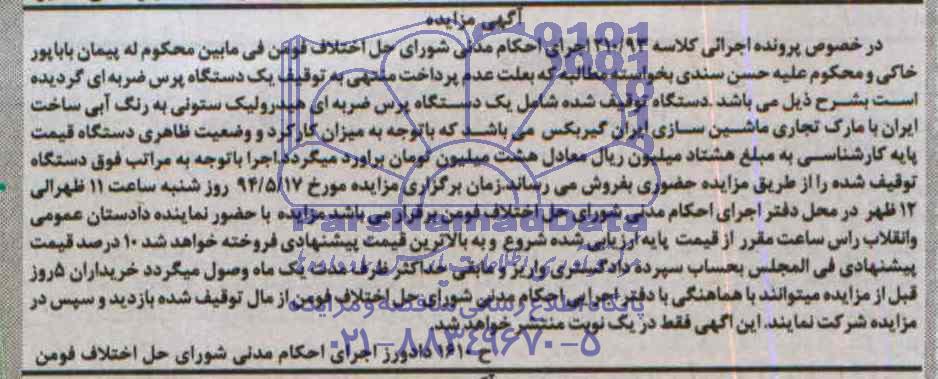 آگهی مزایده
در خصوص پرونده اجرائی کلاسه ۲۱۰/۹۳ اجرای احکام مدنی شورای حل اختلاف فومن فی مابین محکوم له پیمان باباپور
خاکی و محکوم علیه حسن سندی بخواسته مطالبه که بعلت عدم پرداخت منتهی به توقیف یک دستگاه پرس ضربه ای گردیده
است بشرح ذیل می باشد .دستگاه توقیف شده شامل یک دستگاه پرس ضربه ای هیدرولیک ستونی به رنگ آبی ساخت
ایران با مارک تجاری ماشین سازی ایران گیربکس می باشد که باتوجه به میزان کارکرد و وضعیت ظاهری دستگاه قیمت
پایه کارشناسی به مبلغ هشتاد میلیون ریال معادل هشت میلیون تومان براورد میگردد.اجرا باتوجه به مراتب فوق دستگاه
توقیف شده را از طریق مزایده حضوری بفروش می رساند.زمان برگزاری مزایده مورخ ۹۴/۵/۱۷ روز شنبه ساعت ۱۱ ظهرالی
۱۲ ظهر در محل دفتر اجرای احکام مدنی شورای حل اختلاف فومن برقرار می باشد.مزایده با حضور نماینده دادستان عمومی
وانقلاب راس ساعت مقرر از قیمت پایه ارزیابی شده شروع و به بالاترین قیمت پیشنهادی فروخته خواهد شد ۱۰ درصد قیمت
پیشنهادی فی المجلس بحساب سپرده دادگستری واریز و مابقی حداکثر ظرف مدت یک ماه وصول میگردد خریداران ۵روز
قبل از مزایده میتوانند با هماهنگی با دفتر اجرایی احکام مدنی شورای حل اختلاف فومن از مال توقیف شده بازدید و سپس در
مزایده شرکت نمایند. این اگهی فقط در یک نوبت منتشر خواهد شد.
ح-۱۶۱ دادورز اجرای احکام مدنی شورای حل اختلاف فومن
ParsNamadData
پایگاه اطلاع رسانی مناقصه و مزایده
۰۲۱-۸۸۳۴۹۶۷۰-۵